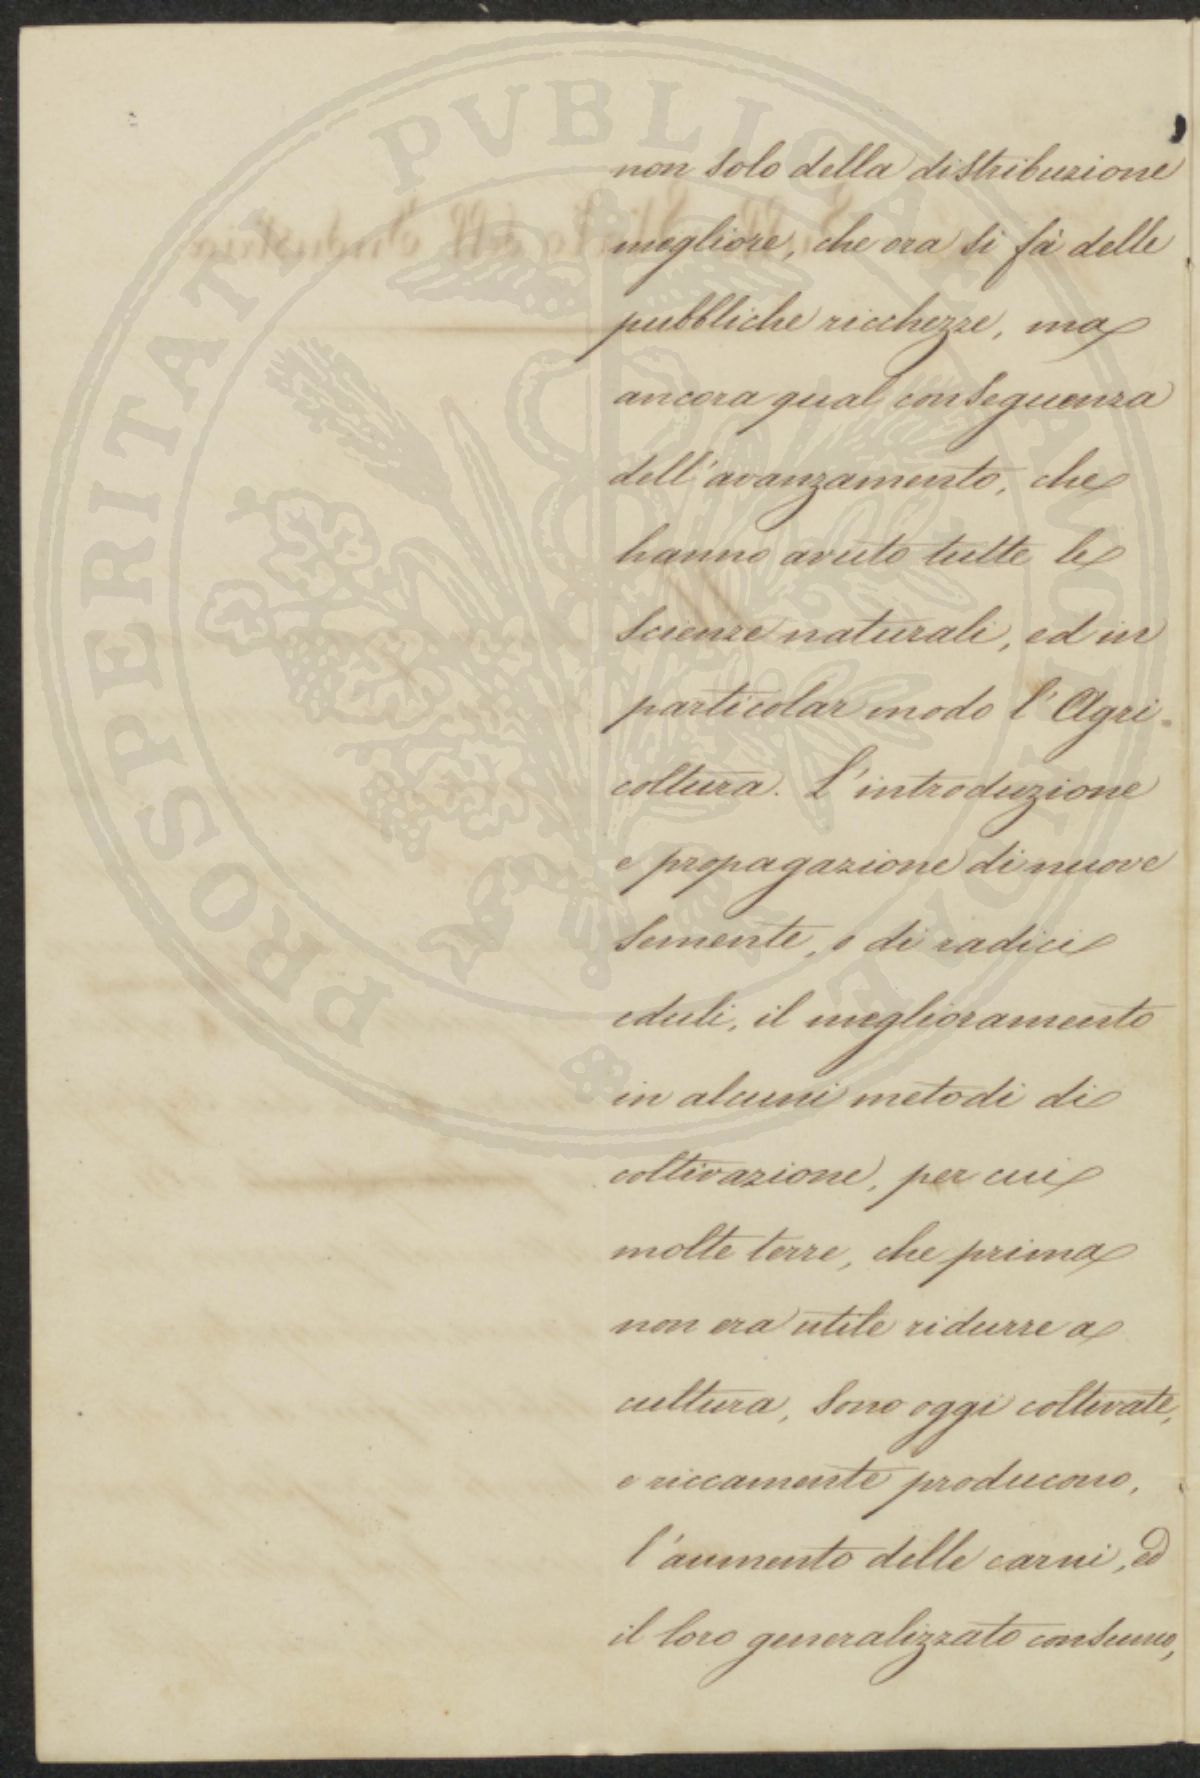 non solo della distribuzione
megliore, che ora si fà delle
pubbliche ricchezze, ma
ancora qual conseguenza
dell'avanzamento, che
hanno avuto tutte le
scienze naturali, ed in
particolar modo l'Agri-
coltura. L'introduzione
e propagazione di nuove
semente, e di radici
eduli, il miglioramento
in alcuni metodi di
coltivazione, per cui
molte terre, che prima
non era utile ridurre a
cultura, sono oggi coltivate,
e riccamente producono,
l'aumento delle carni, ed
il loro generalizzato consumo,
PROSPERITATI PUBLICAE AUGENDAE